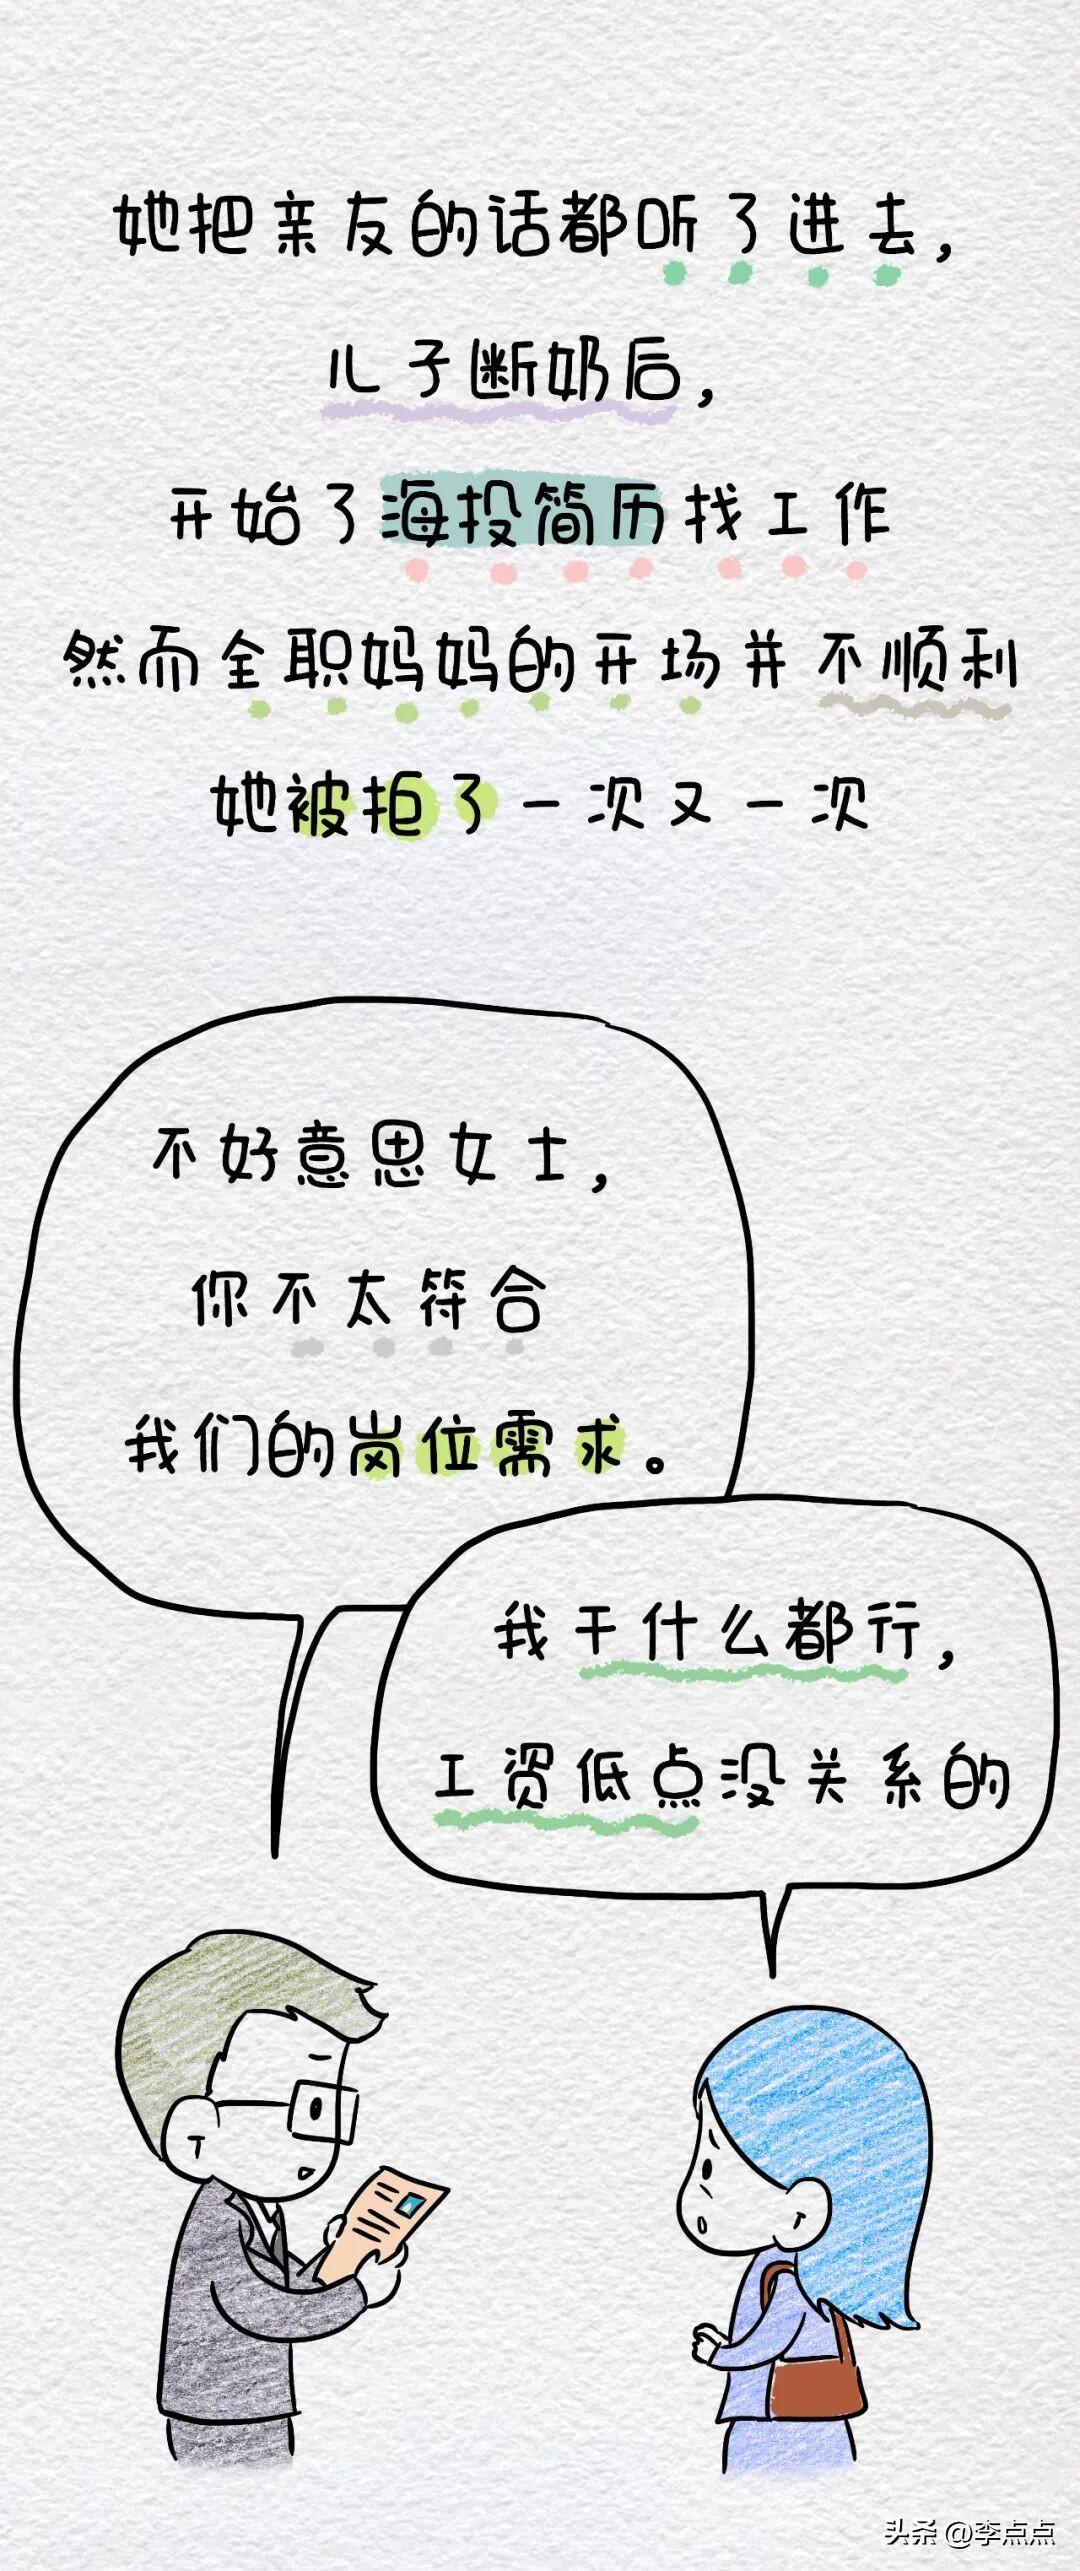 她把亲友的话都听了进去，
儿子断奶后，
开始了海投简历找工作
然而全职妈妈的开场并不顺利
她被拒了一次又一次
不好意思女士，
你不太符合
我们的岗位需求。
我干什么都行，
工资低点没关系的
头条 @李点点